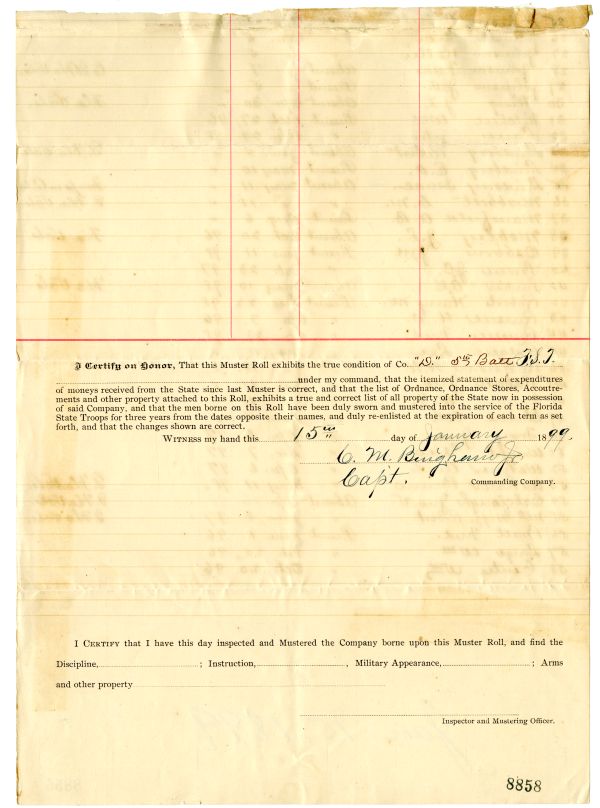 I Certify on Honor, That this Muster Roll exhibits the true condition of Co. "D." 5th Batt F.S.T.
under my command, that the itemized statement of expenditures
of moneys received from the State since last Muster is correct, and that the list of Ordnance, Ordnance Stores, Accoutre-
ments and other property attached to this Roll, exhibits a true and correct list of all property of the State now in possession
of said Company, and that the men borne on this Roll have been duly sworn and mustered into the service of the Florida
State Troops for three years from the dates opposite their names, and duly re-enlisted at the expiration of each term as set
forth, and that the changes shown are correct.
WITNESS my hand this 15th day of January 1899.
C. M. Bingham Jr
Capt. Commanding Company.
I CERTIFY that I have this day inspected and Mustered the Company borne upon this Muster Roll, and find the
Discipline, ; Instruction, , Military Appearance, ; Arms
and other property
Inspector and Mustering Officer.
8858